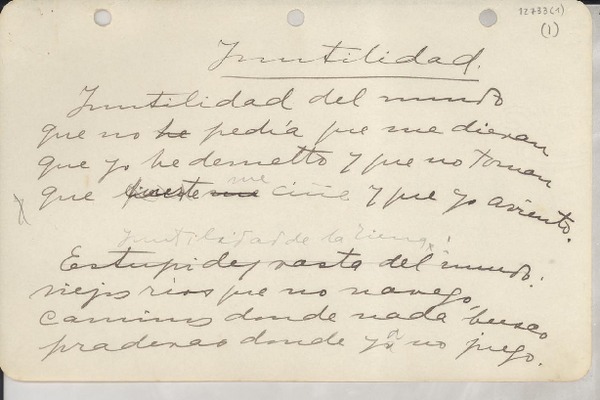 12733(1)
(1)
Inutilidad.
Inutilidad del mundo
que no he pedía que me dieran
que yo he demetto y que no toman
que me ciñe y que yo aviento.
Inutilidad de la
Estupidez vasta del mundo:
viejos rios que no navego,
caminos donde nada busco
praderas donde ya no juego.